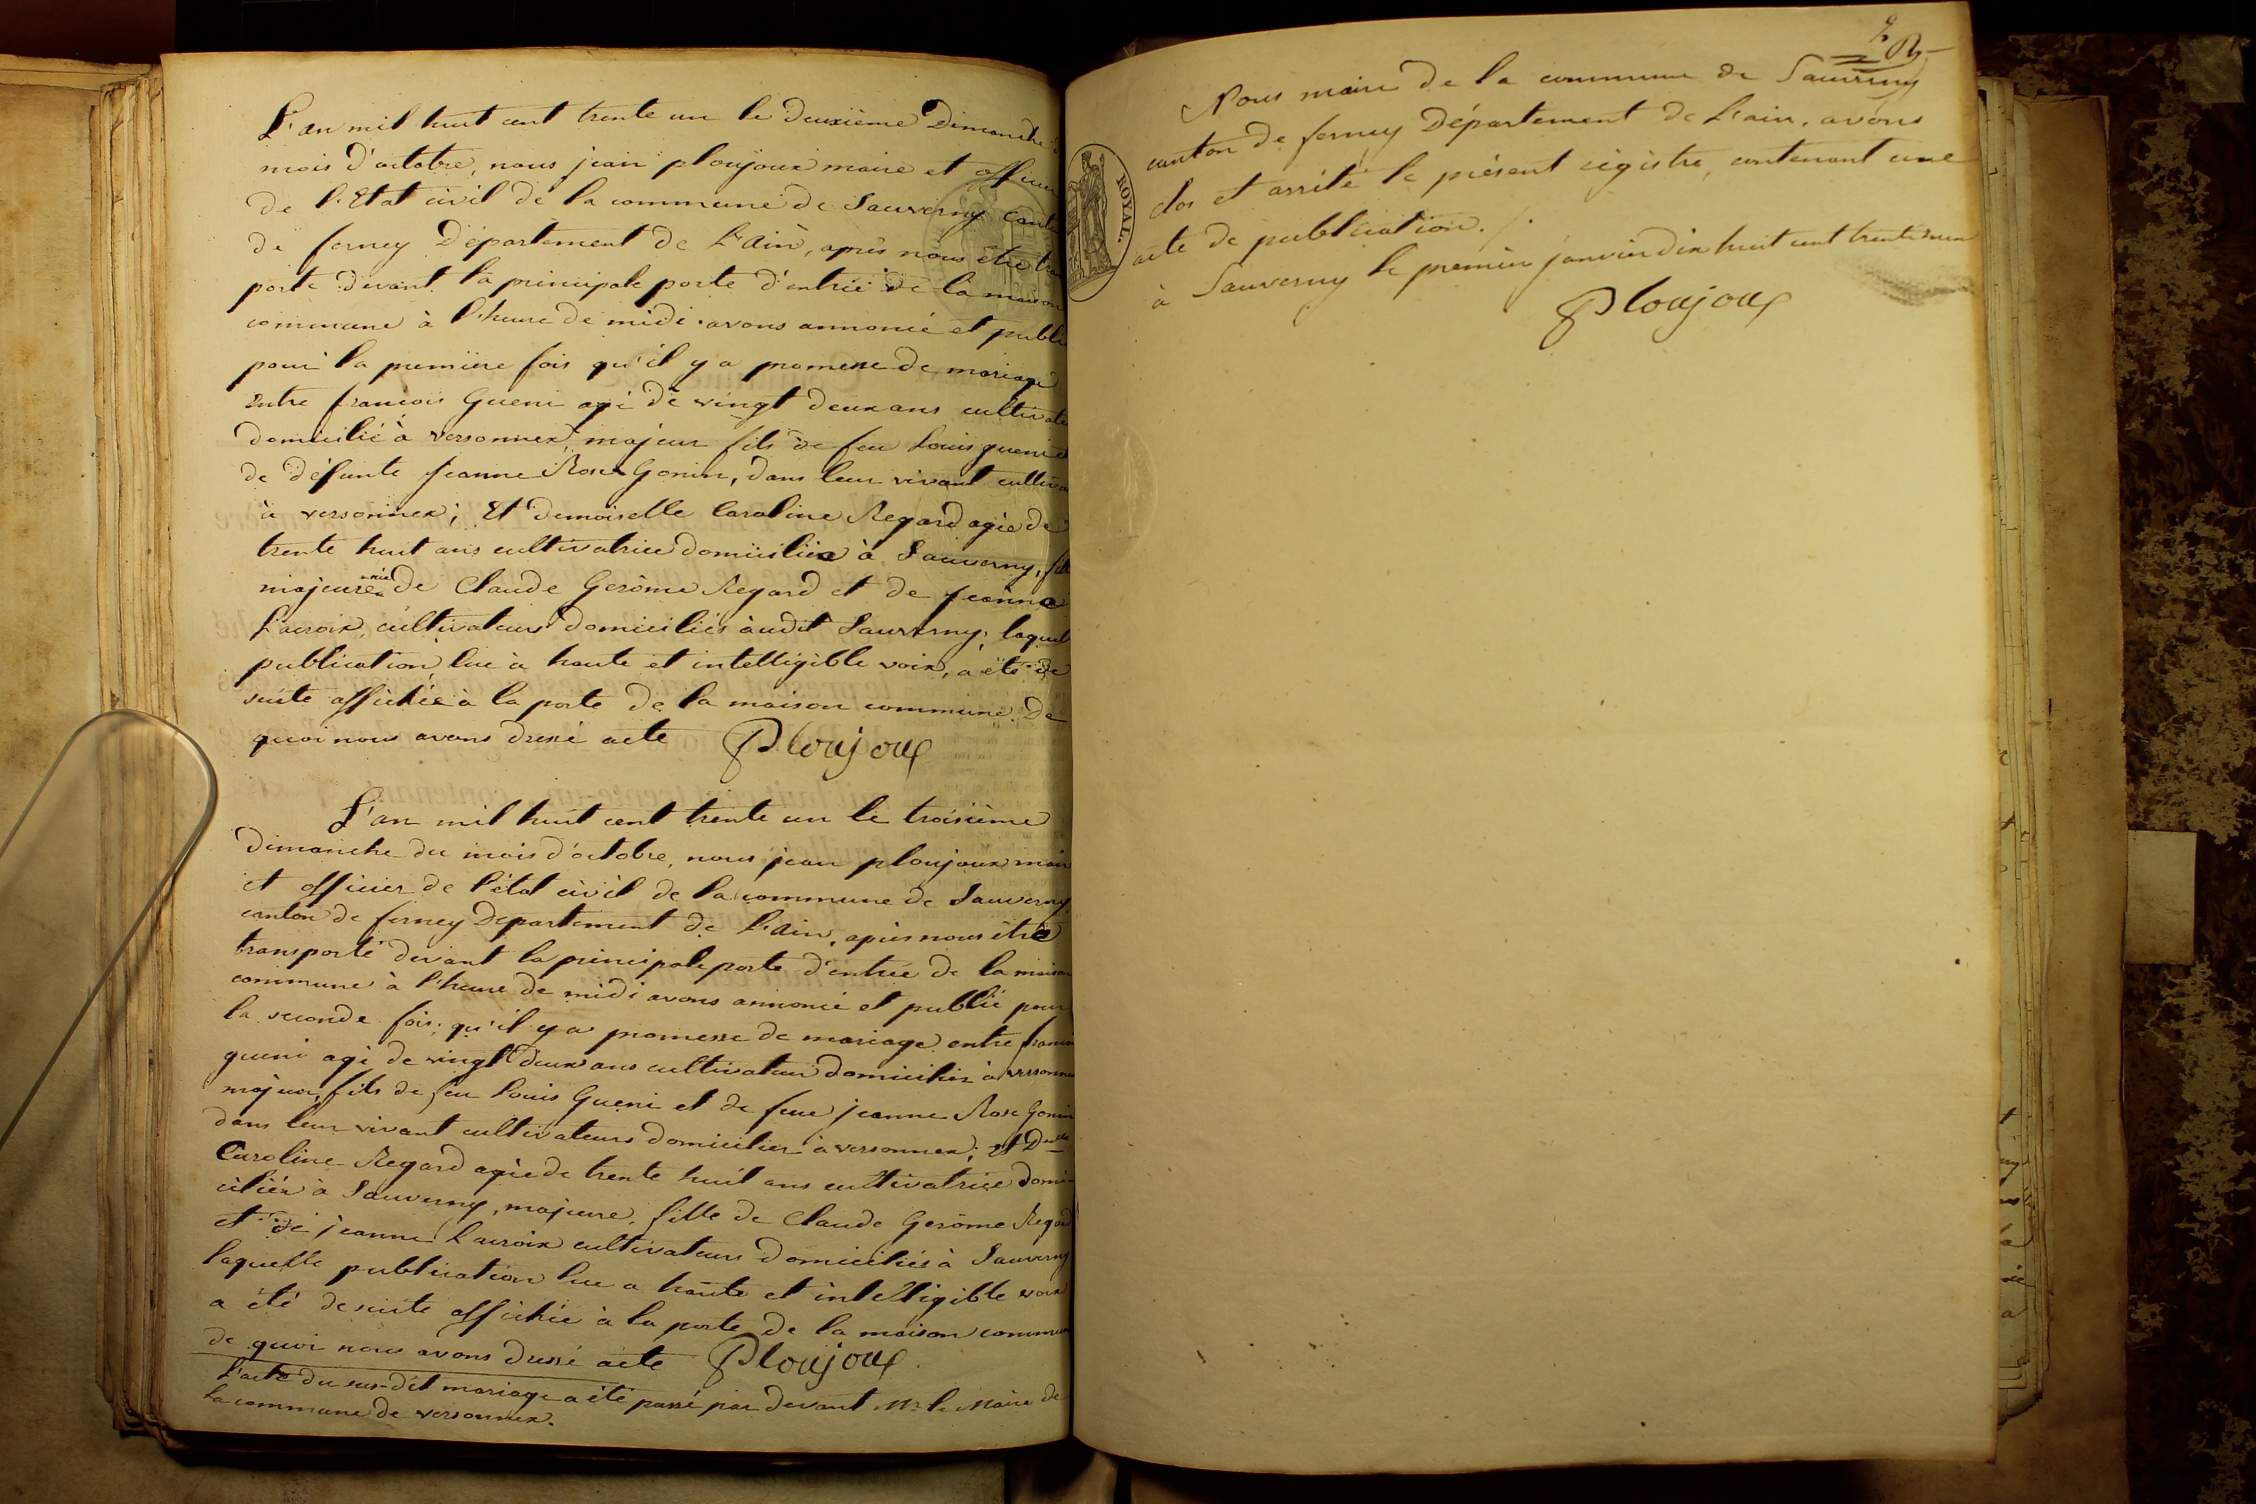 L'an mil huit cent trente un le deuxième Dimanche
mois d'octobre, nous jean ploujoux maire et officier
de l'Etat civil de la commune de Sauverny canton
de ferney Département de L'Ain, après nous être tra
porté devant la principale porte d'entrée de la maison
commune à l'heure de midi avons annoncé et publi
pour la première fois qu'il y a promesse de mariage
Entre françois Gueni agé de vingt deux ans cultivate
domicilié à versonnex majeur fils de feu Louis gueni et
de défunte jeanne Rose Gonin, dans leur vivant cultiva
à versonnex; Et demoiselle Caroline Regard agée de
trente huit ans cultivatrice domiciliée à Sauverny, fille
majeure de Claude Gerôme Regard et de jeanne
Lacroix, cultivateurs domiciliés audit Sauverny; laquel
publication lue à haute et intelligible voix, a été de
suite affichée à la porte de la maison commune. De
quoi nous avons dressé acte Ploujoux
L'an mil huit cent trente un le troisième
dimanche du mois d'octobre, nous jean ploujoux maire
et officier de l'état civil de la commune de Sauverny
canton de ferney Département de L'Ain, après nous être
transporté devant la principale porte d'entrée de la maison
commune à l'heure de midi avons annoncé et publié pour
la seconde fois; qu'il y a promesse de mariage entre franço
gueni agé de vingt deux ans cultivateur domicilier à versonnex
majeur, fils de feu Louis Gueni et de feue jeanne Rose Gonin
dans leur vivant cultivateurs domicilier à versonnex; et Dlle
Caroline Regard agée de trente huit ans cultivatrice domi-
ciliée à Sauverny, majeure, fille de Claude Gerôme Regard
et de jeanne Lacroix cultivateurs domiciliés à Sauverny
laquelle publication lue a haute et intelligible voix
a été de suite affichée à la porte de la maison commun
de quoi nous avons dressé acte Ploujoux
L'acte du sus-dit mariage a été passé par devant Mr le Maire de
la commune de versonnex.
Nous maire de la commune de Sauverny
canton de ferney Département de L'ain, avons
clos et arrêté le présent régistre, contenant une
acte de publication.
à Sauverny le premier janvier dix huit cent trente deux
Ploujoux
ROYAL.